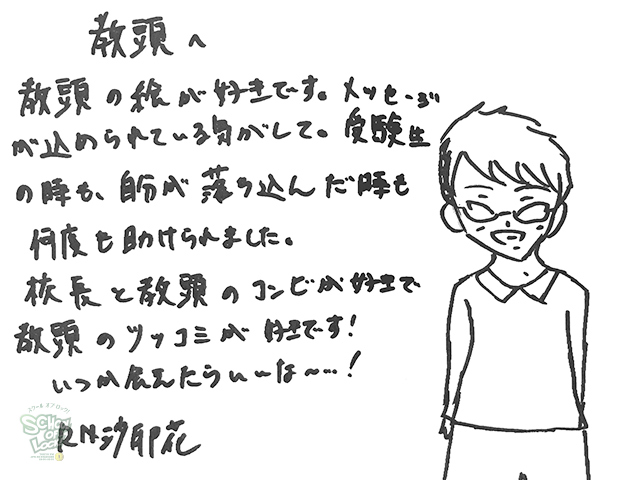 教頭へ
教頭の絵が好きです。メッセージ
が込められている気がして。受験生
の時も、自分が落ち込んだ時も
何度も助けられました。
校長と教頭のコンビが好きで
教頭のツッコミが好きです!
いつか会えたらいーな〜…!
RN沙卯花
SCHOOL OF LOCK!